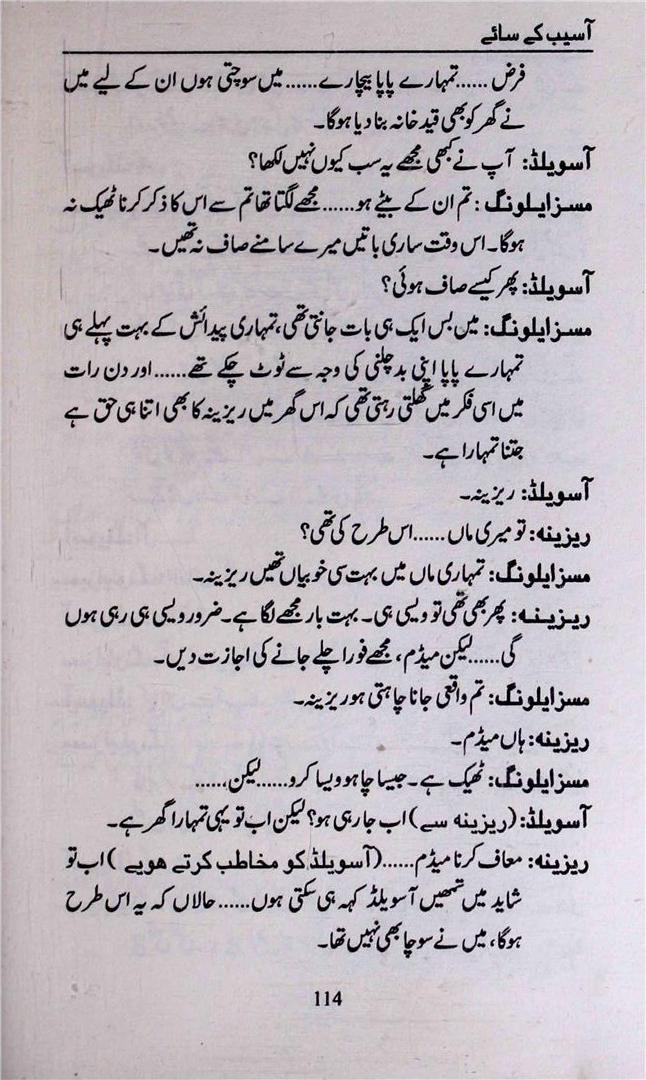 آسیب کے سائے
فرض ......تمہارے پاپا بیچارے...... میں سوچتی ہوں ان کے لیے میں
نے گھر کو بھی قید خانہ بنا دیا ہوگا۔
آسویلڈ: آپ نے کبھی مجھے یہ سب کیوں نہیں لکھا؟
مسز ایلونگ: تم ان کے بیٹے ہو...... مجھے لگتا تھا تم سے اس کا ذکر کرنا ٹھیک نہ
ہوگا۔ اس وقت ساری باتیں میرے سامنے صاف نہ تھیں۔
آسویلڈ: پھر کیسے صاف ہوئی؟
مسز ایلونگ: میں بس ایک ہی بات جانتی تھی، تمہاری پیدائش کے بہت پہلے ہی
تمہارے پاپا اپنی بدچلنی کی وجہ سے ٹوٹ چکے تھے...... اور دن رات
میں اسی فکر میں گھلتی رہتی تھی کہ اس گھر میں ریزینہ کا بھی اتنا ہی حق ہے
جتنا تمہارا ہے۔
آسویلڈ: ریزینہ۔
ریزینہ: تو میری ماں...... اس طرح کی تھی؟
مسز ایلونگ: تمہاری ماں میں بہت سی خوبیاں تھیں ریزینہ۔
ریزینہ: پھر بھی تھی تو ویسی ہی۔ بہت بار مجھے لگا ہے۔ ضرور ویسی ہی رہی ہوں
گی...... لیکن میڈم، مجھے فوراً چلے جانے کی اجازت دیں۔
مسز ایلونگ: تم واقعی جانا چاہتی ہو ریزینہ۔
ریزینہ: ہاں میڈم۔
مسز ایلونگ: ٹھیک ہے۔ جیسا چاہو ویسا کرو...... لیکن......
آسویلڈ: (ریزینہ سے) اب جارہی ہو؟ لیکن اب تو یہی تمہارا گھر ہے۔
ریزینہ: معاف کرنا میڈم...... (آسویلڈ کو مخاطب کرتے ہویے) اب تو
شاید میں تمھیں آسویلڈ کہہ ہی سکتی ہوں...... حالاں کہ یہ اس طرح
ہوگا، میں نے سوچا بھی نہیں تھا۔
114